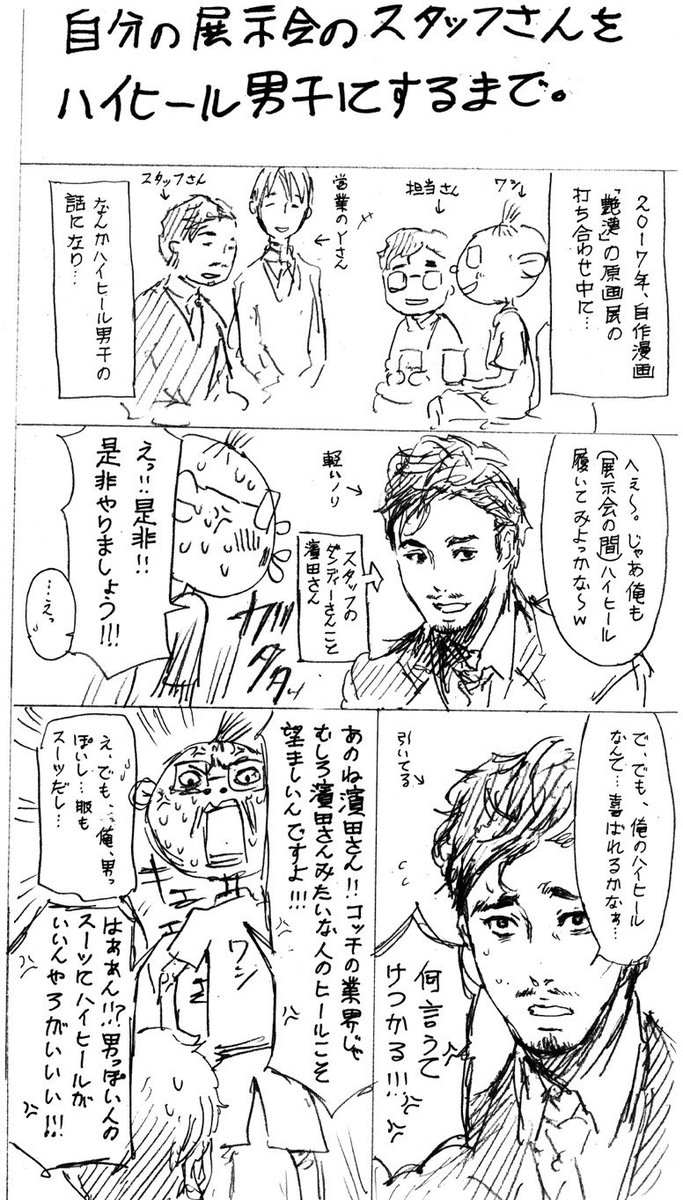 自分の展示会のスタッフさんを
ハイヒール男子にするまで。
2017年、自作漫画
「艶漢」の原画展の
打ち合わせ中に…
ワシ
担当さん
営業のYさん
スタッフさん
なんかハイヒール男子の
話になり…
へぇ〜。じゃあ俺も
(展示会の間)ハイヒール
履いてみよっかな〜w
軽いノリ
スタッフの
ダンディーさんこと
濱田さん
えっ!!是非!!
是非やりましょう!!!
ガタタッ
…えっ
で、でも、俺のハイヒール
なんて…喜ばれるかなぁ…
引いてる
何言うて
けつかる!!!
あのね濱田さん!!コッチの業界じゃ
むしろ濱田さんみたいな人のヒールこそ
望ましいんですよ!!!
え、でも、…俺、男っ
ぽいし…服も
スーツだし…
ワシ
はぁあん!!?男っぽい人の
スーツにハイヒールが
いいんやろがいいい!!!